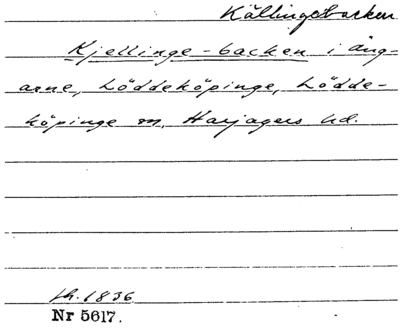 Källingebacken
Kjellinge-backen i äng-
arne, Löddeköpinge, Lödde-
köpinge sn, Harjagers hd.
sk. 1836
Nr 5617.